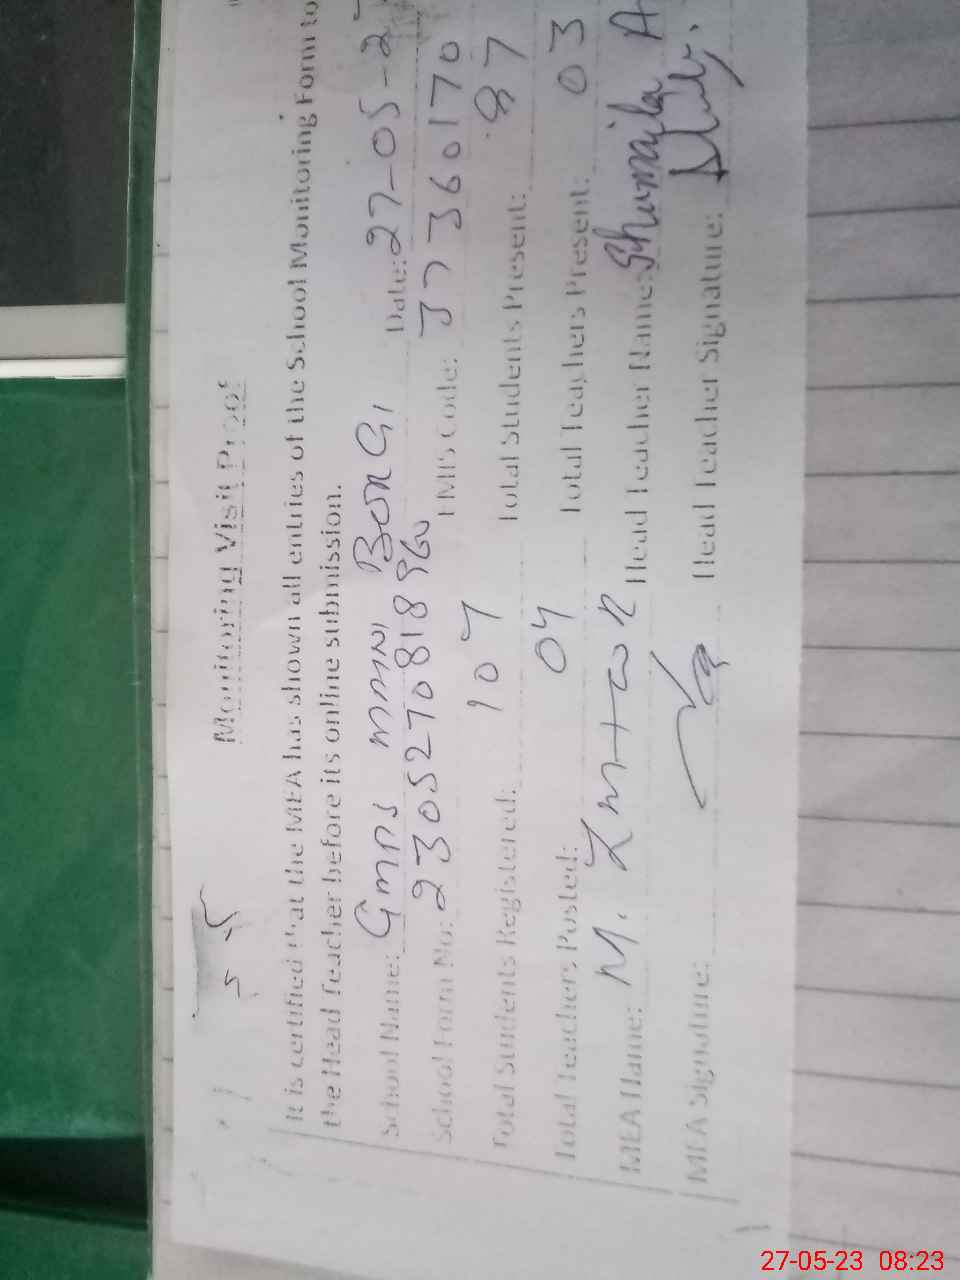 Monitoring Visit Proof
It is certified that the MEA has shown all entries of the School Monitoring Form to
the Head Teacher before its online submission.
School Name: Gmns mmni Date: 27-05-2
School Form No: 230527081896 EMIS Code: 37360170
Total Students Registered: 107 Total Students Present: 87
Total Teachers Posted: 04 Total Teachers Present: 03
MEA Name: M. Head Teacher Name: Shumaila A
MEA Signature: Head Teacher Signature:
27-05-23 08:23